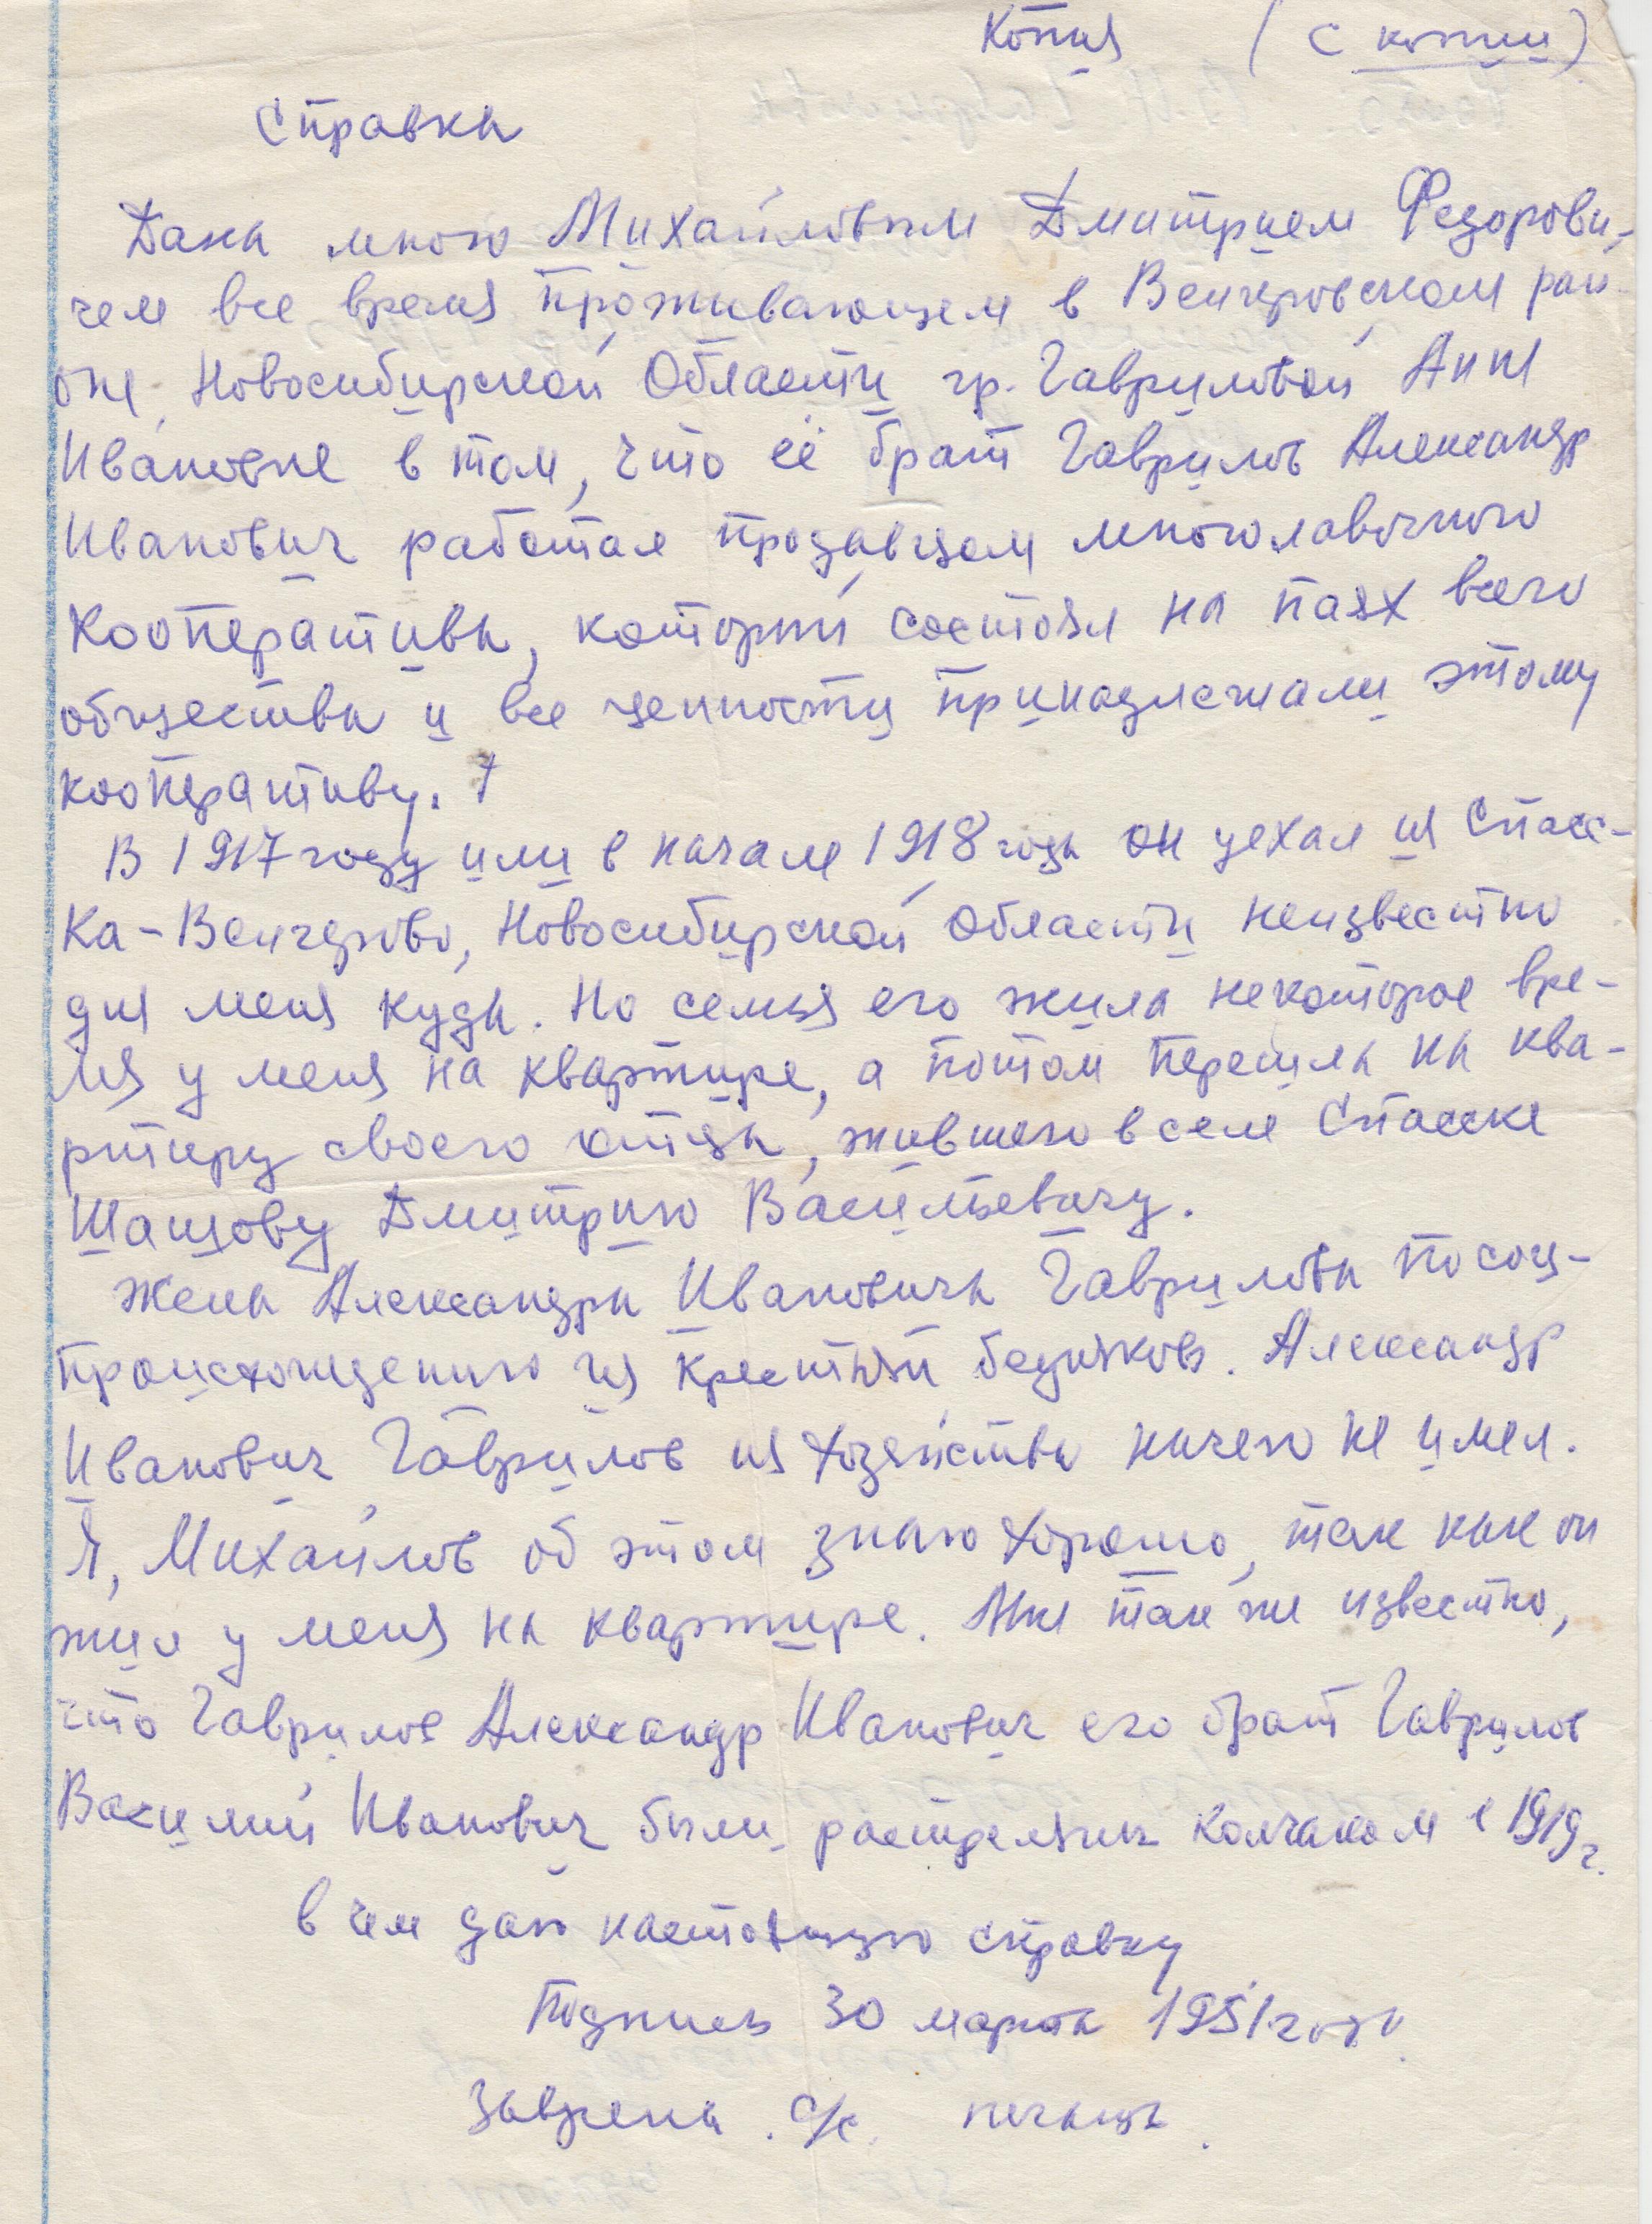 Копия (с копии)
Справка
Дана мною Михайловым Дмитрием Федорови-
чем все время проживающем в Венгеровском рай-
оне, Новосибирской Области гр. Гавриловой Анне
Ивановне в том, что её брат Гаврилов Александр
Иванович работал продавцом многолавочного
Кооператива, который состоял на паях всего
общества и все ценности принадлежали этому
кооперативу.
В 1917 году или в начале 1918 года он уехал из Спасс-
ка-Венгерово, Новосибирской области неизвестно
для меня куда. Но семья его жила некоторое вре-
мя у меня на квартире, а потом перешла на ква-
ртиру своего отца, жившего в селе Спасске
Шащову Дмитрию Васильевичу.
Жена Александра Ивановича Гаврилова по соц-
происхождению из крестьян бедняков. Александр
Иванович Гаврилов из хозяйства ничего не имел.
Я, Михайлов об этом знаю хорошо, так как он
жил у меня на квартире. Мне так же известно,
что Гаврилов Александр Иванович его брат Гаврилов
Василий Иванович были расстреляны Колчаком в 1919 г.
в чем даю настоящую справку
Подпись 30 марта 1951 года.
Заверена с/с. печать.